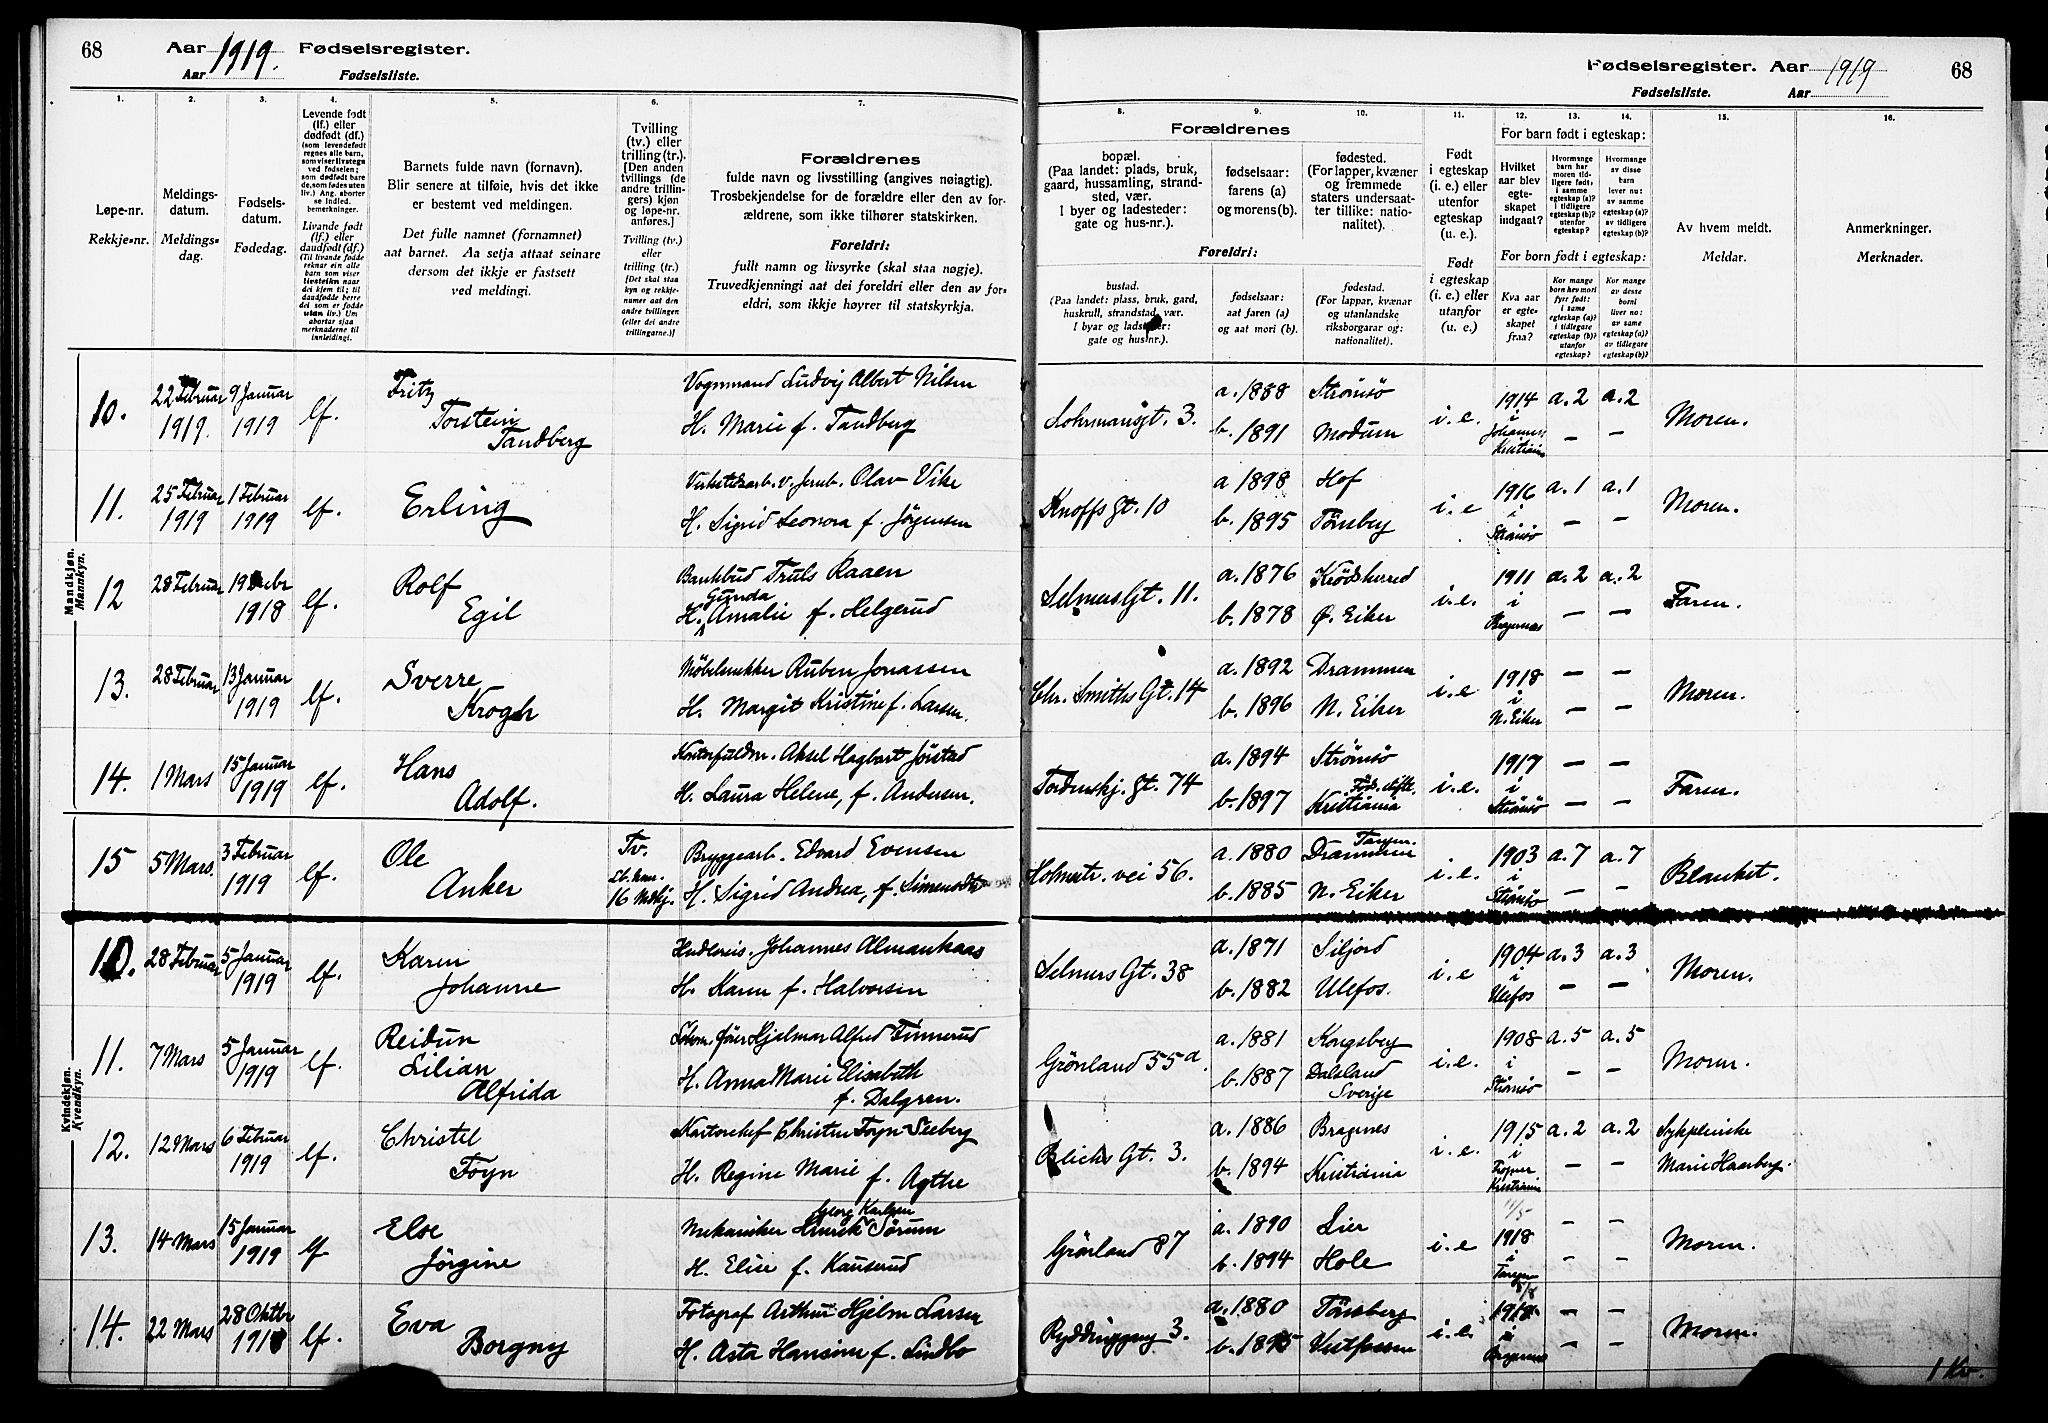 68 Aar 1919. Fødselsregister.
Aar Fødselsliste.
Fødselsregister. Aar 1919 68
Fødselsliste. Aar
1. 2. 3. 4. 5. 6. 7.
Løpe-nr.
Rekkje-nr.
Meldings-
datum.
Meldings-
dag.
Fødsels-
datum.
Fødedag.
Levende født
(lf.) eller
dødfødt (df.)
Livande født
(lf.) eller
daudfødt (df.)
Barnets fulde navn (fornavn).
Blir senere at tilføie, hvis det ikke
er bestemt ved meldingen.
Det fulle namnet (fornamnet)
aat barnet. Aa setja attaat seinare
dersom det ikkje er fastsett
ved meldingi.
Tvilling
(tv.) eller
trilling (tr.).
[Den anden
tvillings (de
andre trillin-
gers) kjøn
og løpe-nr.
anføres.]
Tvilling (tv.)
eller
trilling (tr.)
[Det skal staa
kyn og rekkje-
numer aat den
andre tvillingen
(eller dei andre
trillingarne.)]
Forældrenes
fulde navn og livsstilling (angives nøiagtig).
Trosbekjendelse for de forældre eller den av for-
ældrene, som ikke tilhører statskirken.
Foreldri:
fullt namn og livsyrke (skal staa nøgje).
Truvedkjenningi aat dei foreldri eller den av for-
eldri, som ikkje høyrer til statskyrkja.
8. 9. 10. 11. 12. 13. 14. 15. 16.
Forældrenes
bopæl.
(Paa landet: plads, bruk,
gaard, hussamling, strand-
sted, vær.
I byer og ladesteder:
gate og hus-nr.).
Foreldri:
bustad.
(Paa landet: plass, bruk, gard,
huskrull, strandstad, vær.
I byar og ladstader:
gate og hus-nr.).
fødselsaar:
farens (a)
og morens (b).
fødselsaar:
aat faren (a)
og aat mori (b).
fødested.
(For lapper, kvæner
og fremmede
staters undersaat-
ter tillike: natio-
nalitet).
fødestad.
(For lappar, kvænar
og utanlandske
riksborgarar og:
nationalitet).
Født
i egteskap
(i. e.) eller
utenfor
egteskap
(u. e.).
Født
i egteskap
(i. e.) eller
utanfor
egteskap
(u. e.).
For barn født i egteskap:
Hvilket
aar blev
egte-
skapet
indgaat?
For born født i egteskap:
Kva aar
er egte-
skapet
fraa?
Av hvem meldt.
Meldar.
Anmerkninger.
Merknader.
Mandkjøn.
Mannkyn.
10. 22 Februar 1919. 9 Januar 1919 lf. Fritz Torstein Tandberg Vognmand Ludvig Albert Nilsen H. Marie f. Tandberg a. 1888 b. 1891 Strømsø Modum i. e. 1914 i Johannes Kristiania a. 2 a. 2 — — Moren.
11. 25 Februar 1919 1 Februar 1919 lf. Erling Olav Vike H. Sigrid Leonora f. Jørgensen Knoffs gt. 10 a 1898 b. 1895 Hof Tönsberg i. e 1916 i Strømsø a. 1 a. 1 — — Moren.
12 28 Februar 1918 lf. Rolf Egil Truls Raaen H. Gunda Amalie f. Helgerud Selmers Gt. 11. a. 1876 b. 1878 Krødsherred Ø. Eiker i. e. 1911 i Bragernæs a. 2 a. 2 — — Faren.
13. 28 Februar 13 Januar 1919 lf. Sverre Krogh Møbelsnekker Ruben Jonassen H. Margit Kristine f. Larsen. Chr. Smiths Gt. 14 a. 1892 b. 1896 Drammen N. Eiker i. e 1918 i N. Eiker — — — — Moren.
14. 1 Mars 15 Januar 1919 lf. Hans Adolf. Aksel Hagbart Jörstad H. Laura Helene, f. Andersen. Tordenskj. gt. 74 a. 1894 b. 1897 Strömsö Kristiania Föd. stift. i. e. 1917 i Strømsø — — — — Faren.
15 5 Mars. 3 Februar 1919 lf. Ole Anker Tv. 16 Bryggearb. Edvard Evensen H. Sigrid Andrea, f. Simensdtr Holmestr. vei 56. a. 1880 b. 1885 Drammen Tangen. N. Eiker i. e. 1903 i Strømsø a. 7 a. 7 — — Blanket.
Kvindekjøn.
Kvendkyn.
10. 28 Februar 5 Januar 1919 lf. Karen Johanne Johannes Almankaas H. Karen f. Halvorsen Selmers Gt. 38 a. 1871 b. 1882 Siljord Ulefos. i. e 1904 i Ulefos a. 3 a. 3 — — Moren.
11. 7 Mars 5 Januar 1919 lf. Reidun Lilian Alfrida Hjalmar Alfred Finnerud H. Anna Marie Elisabeth f. Dalgren. Grønland 55 a. a. 1881 b. 1887 Kongsberg Dalsland Sverige i. e. 1908 i Strømsø a. 5 a. 5 — — Moren.
12. 12 Mars 6 Februar 1919 lf. Christel Foyn Kontorchef Christen Foyn Seeberg H. Regine Marie f. Agthe Blichs Gt. 3. a. 1886 b. 1894 Bragnes Kristiania i. e. 1915 i Kristiania a. 2 a. 2 — — Sykepleierske Marie Haarberg.
13. 14 Mars 15 Januar 1919 lf Else Jørgine Mekaniker Georg Karlsen Henrik Sørum H. Elise f. Kauserud Grønland 87 a. 1890 b. 1894 Lier Hole i. e 11/5 1918 i Tangen — — — — Moren.
14. 22 Mars 28 Oktbr 1918 lf. Eva Borgny Fotograf Arthur Hjelm Larsen H. Asta Hansine f. Lindbo Ryddinggang 3. a. 1880 b. 1895 Tönsberg Vestfossen i. e. 1918 i Bragernes — — — — Moren.
1 Kv.